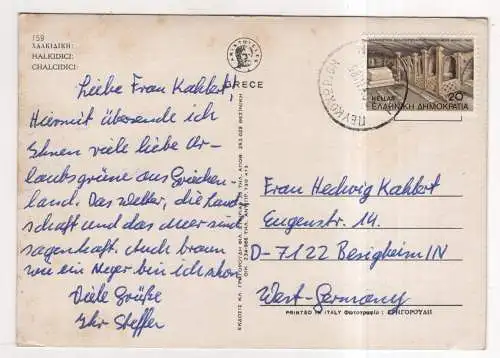 159
ΧΑΛΚΙΔΙΚΗ:
HALKIDICI:
CHALCIDICI:
GRECE
Liebe Frau Kahbert!
Hiermit übersende ich
Ihnen viele liebe Ur-
laubsgrüne aus Griechen-
land. Das Wetter, die Land-
schaft und das Meer sind
sagenhaft. Auch braun
wie ein Neger bin ich schon
Viele Grüße
Ihr Steffen
HELLAS
ΕΛΛΗΝΙΚΗ ΔΗΜΟΚΡΑΤΙΑ
20
Frau Hedwig Kahbert
Eugenstr. 14.
D-7122 Besigheim/N
West-Germany
PRINTED IN ITALY Φωτογραφία: ΓΡΗΓΟΡΟΥΔΗ